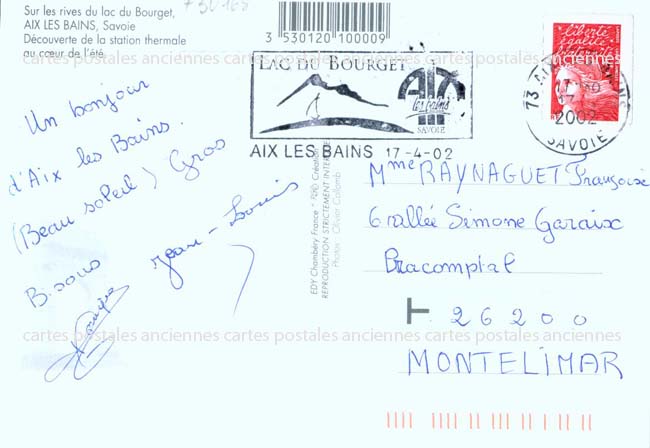 Sur les rives du lac du Bourget,
AIX LES BAINS, Savoie
Découverte de la station thermale
au cœur de l'été
3 530120 100009
Un bonjour
d'Aix les Bains.
(Beau soleil) Gros
Bisous Jean-Louis
LAC DU BOURGET
AIX
les bains
SAVOIE
AIX LES BAINS 17-4-02
liberté
égalité
fraternité
73 AIX LES BAINS
2002
SAVOIE
EDY Chambéry France
REPRODUCTION STRICTEMENT INTERDITE
Photos : Olivier Collomb
Mme RAYNAGUET Françoise
6 allée Simone Garaix
Bracomptal
26200
MONTELIMAR
cartes postales anciennes cartes postales anciennes cartes postales anciennes
cartes postales anciennes cartes postales anciennes cartes postales anciennes